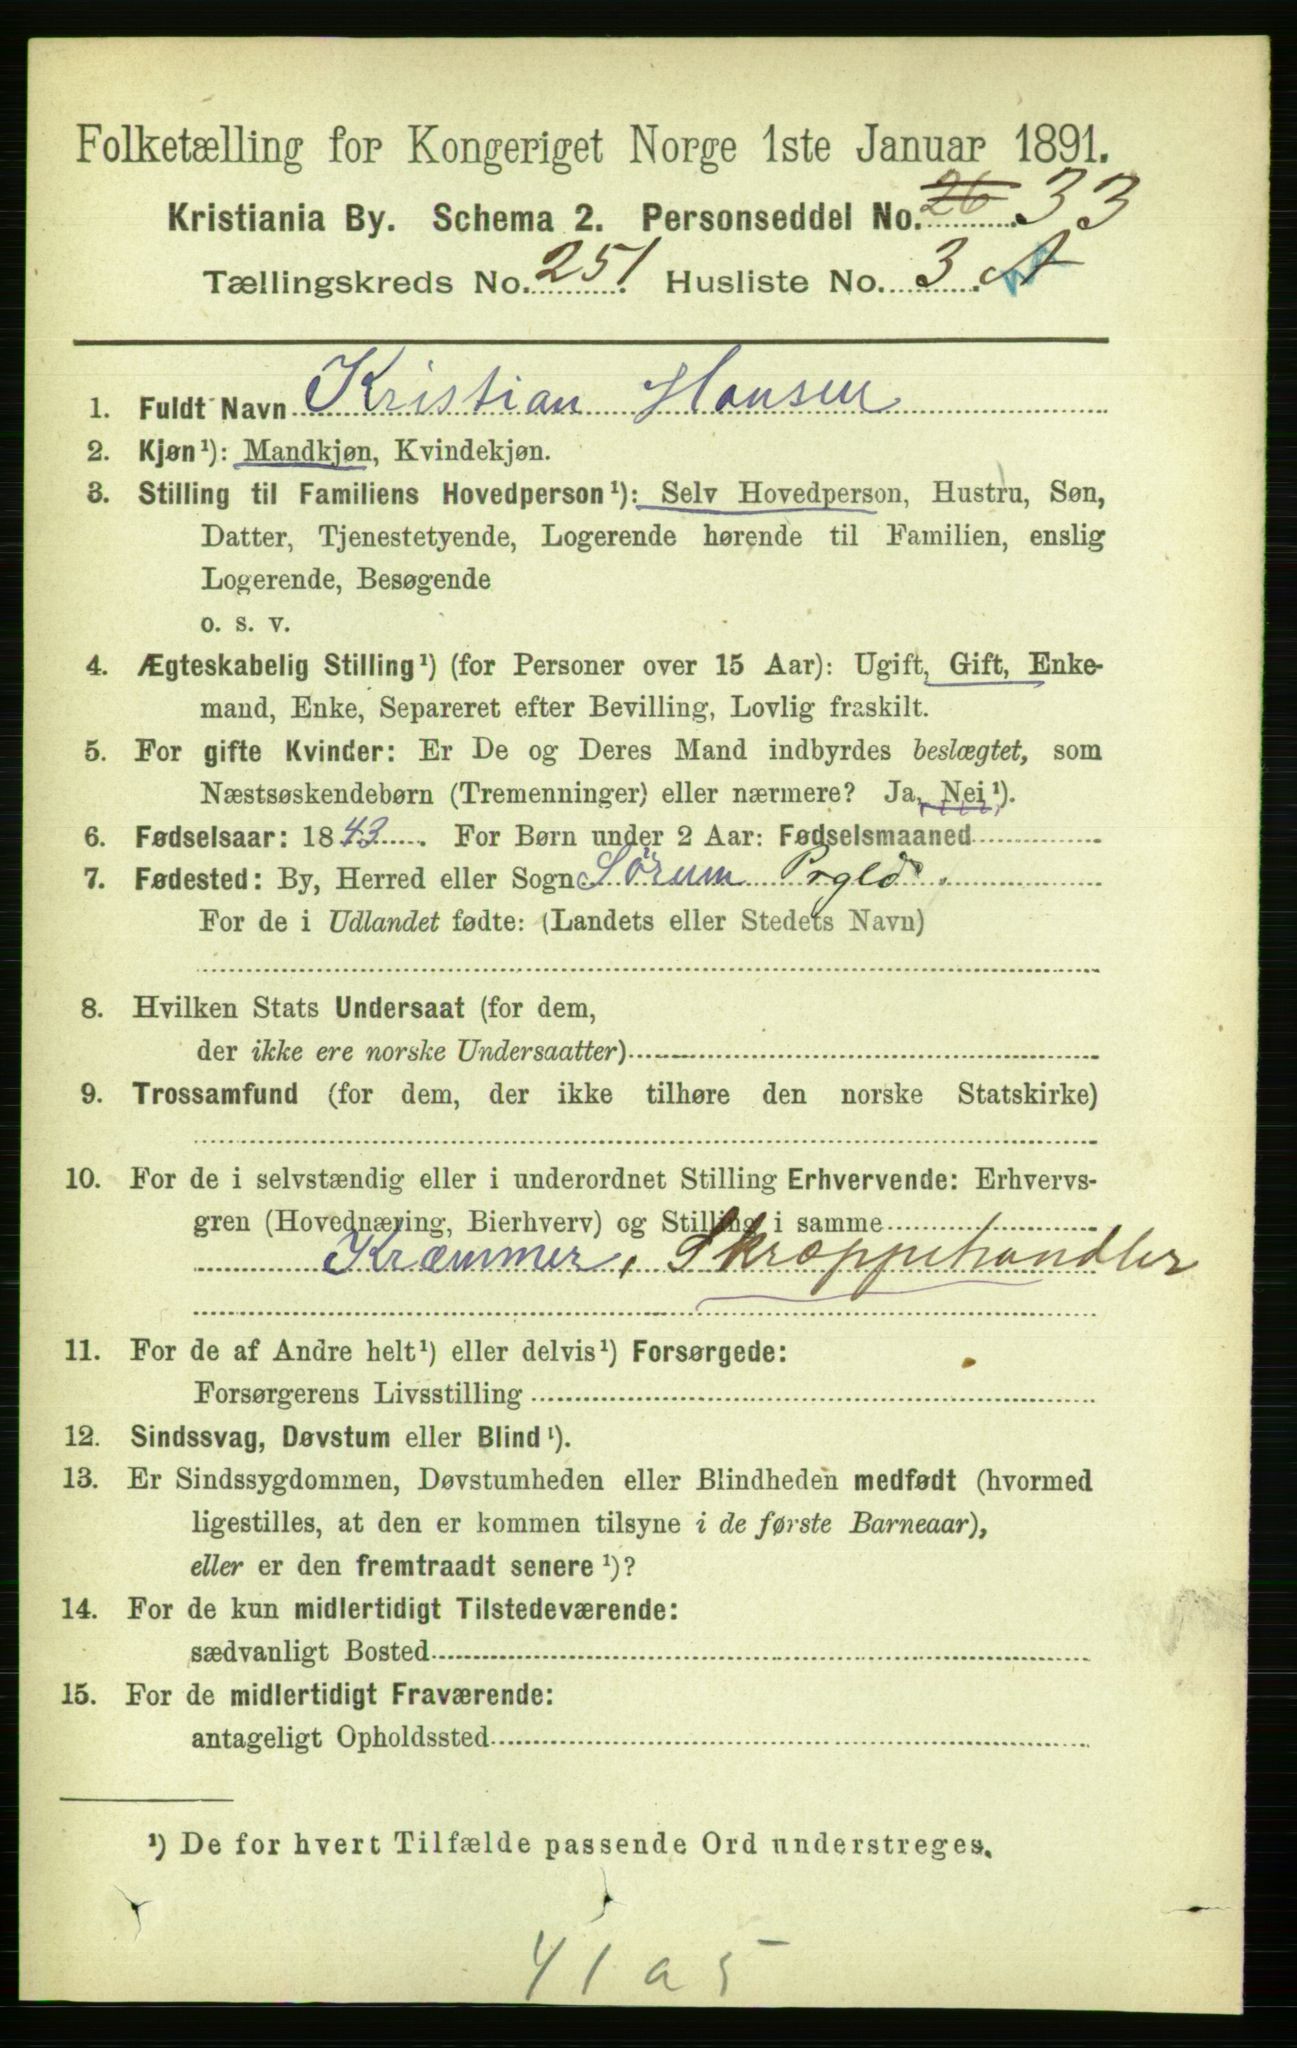 Folketælling for Kongeriget Norge 1ste Januar 1891.
Kristiania By. Schema 2. Personseddel No. 26 33
Tællingskreds No. 251. Husliste No. 3. A
1. Fuldt Navn Kristian Hansen
2. Kjøn¹): Mandkjøn, Kvindekjøn.
3. Stilling til Familiens Hovedperson¹): Selv Hovedperson, Hustru, Søn,
Datter, Tjenestetyende, Logerende hørende til Familien, enslig
Logerende, Besøgende
o. s. v.
4. Ægteskabelig Stilling¹) (for Personer over 15 Aar): Ugift, Gift, Enke-
mand, Enke, Separeret efter Bevilling, Lovlig fraskilt.
5. For gifte Kvinder: Er De og Deres Mand indbyrdes beslægtet, som
Næstsøskendebørn (Tremenninger) eller nærmere? Ja, Nei¹).
6. Fødselsaar: 1843. For Børn under 2 Aar: Fødselsmaaned
7. Fødested: By, Herred eller Sogn Sørum Prgld.
For de i Udlandet fødte: (Landets eller Stedets Navn)
8. Hvilken Stats Undersaat (for dem,
der ikke ere norske Undersaatter)
9. Trossamfund (for dem, der ikke tilhøre den norske Statskirke)
10. For de i selvstændig eller i underordnet Stilling Erhvervende: Erhvervs-
gren (Hovednæring, Bierhverv) og Stilling i samme
Kræmmer, Skræppehandler
11. For de af Andre helt¹) eller delvis¹) Forsørgede:
Forsørgerens Livsstilling
12. Sindssvag, Døvstum eller Blind¹).
13. Er Sindssygdommen, Døvstumheden eller Blindheden medfødt (hvormed
ligestilles, at den er kommen tilsyne i de første Barneaar),
eller er den fremtraadt senere¹)?
14. For de kun midlertidigt Tilstedeværende:
sædvanligt Bosted
15. For de midlertidigt Fraværende:
antageligt Opholdssted
¹) De for hvert Tilfælde passende Ord understreges.
41 a 5